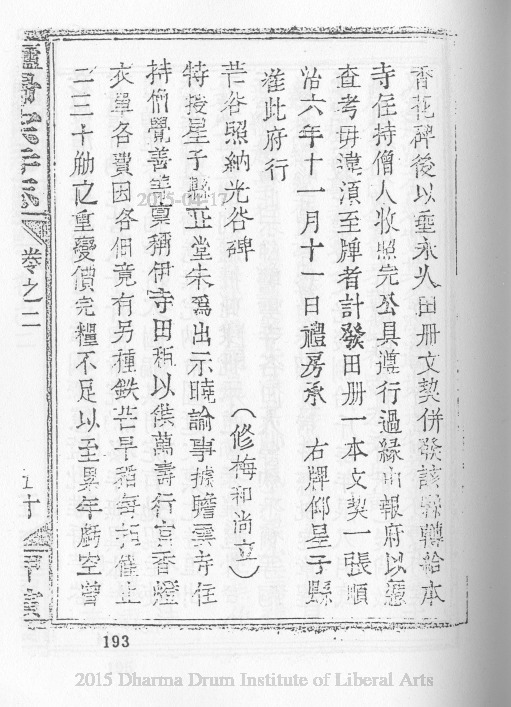 香花碑後以垂永久田册文契併發該縣轉給本
寺住持僧人收照完公具遵行過緣由報府以憑
查考毋違湏至牌者計發田册一本文契一張順
治六年十一月十一日禮房承　右牌仰星子縣
准此府行
芒谷照納光谷碑　（修梅和尚立）
特授星子縣正堂朱為出示曉諭事據瞻雲寺住
持僧覺善等稟稱伊寺田租以供萬壽行宮香燈
衣單各費因各佃竟有另種鉄芒早稻每担僅止
二三十觔之重變價完糧不足以至累年虧空曾
歸宗寺志
卷之二
五十
甲寅
193
2015-04-17
2015 Dharma Drum Institute of Liberal Arts